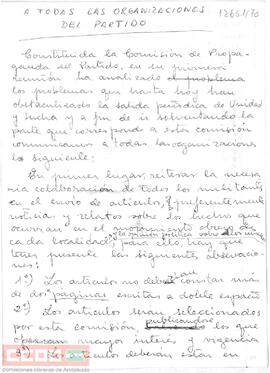 A TODAS LAS ORGANIZACIONES
DEL PARTIDO
Constituida la Comisión de Propa-
ganda del Partido, en su primera
reunión ha analizado el problema
los problemas que hasta hoy han
obstaculizado la salida periódica de Unidad
y Lucha y a fin de ir solventando la
parte que corresponde a esta comisión
comunicamos a todas las organizaciones
lo siguiente:
En primer lugar, reiterar la necesa-
ria colaboración de todos los militantes
en el envío de artículos, preferentemente
noticia y relatos sobre los hechos que
ocurran en el movimiento obrero de
cada localidad para ello, hay que
tener presente las siguientes observacio-
nes:
1º) Los artículos no deben constar más
de dos páginas escritas a doble espacio
2º) Los artículos serán seleccionados
por esta comisión, publicandose los que
mayor interés y vigencia
3º) Los artículos deberán estar en
Comisiones obreras de Andalucía